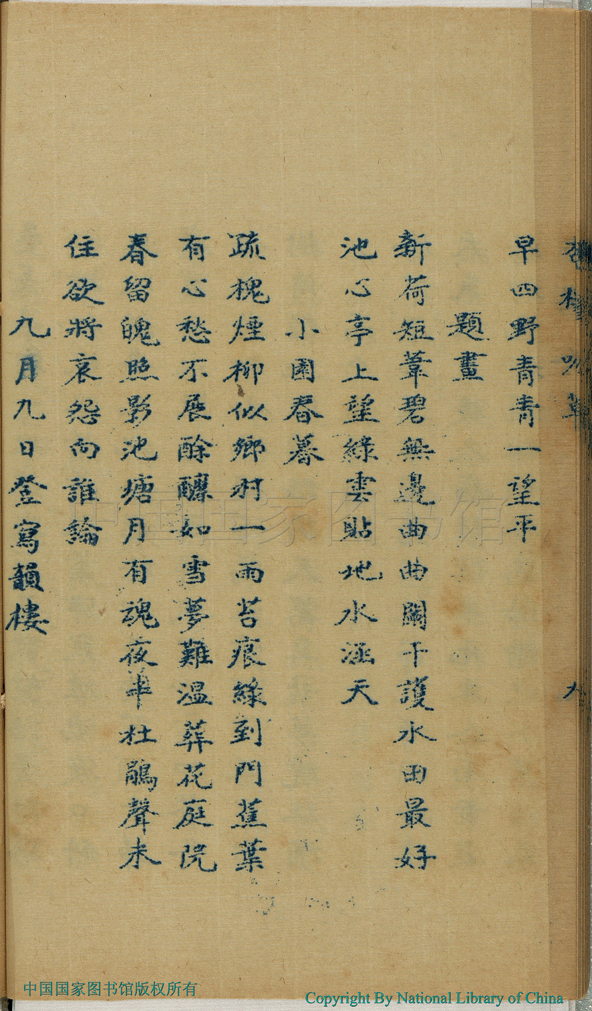 早四野青青一望平
題畫
新荷短葦碧無邊曲曲闌干護水田最好
池心亭上望綠雲貼地水涵天
小園春暮
疏槐煙柳似鄉村一雨苔痕綠到門蕉葉
有心愁不展酴醿如雪夢難温葬花庭院
春留魄照影池塘月有魂夜半杜鵑聲未
住欲將哀怨向誰論
九月九日登寫韻樓
中国国家图书馆
中国国家图书馆版权所有
Copyright By National Library of China